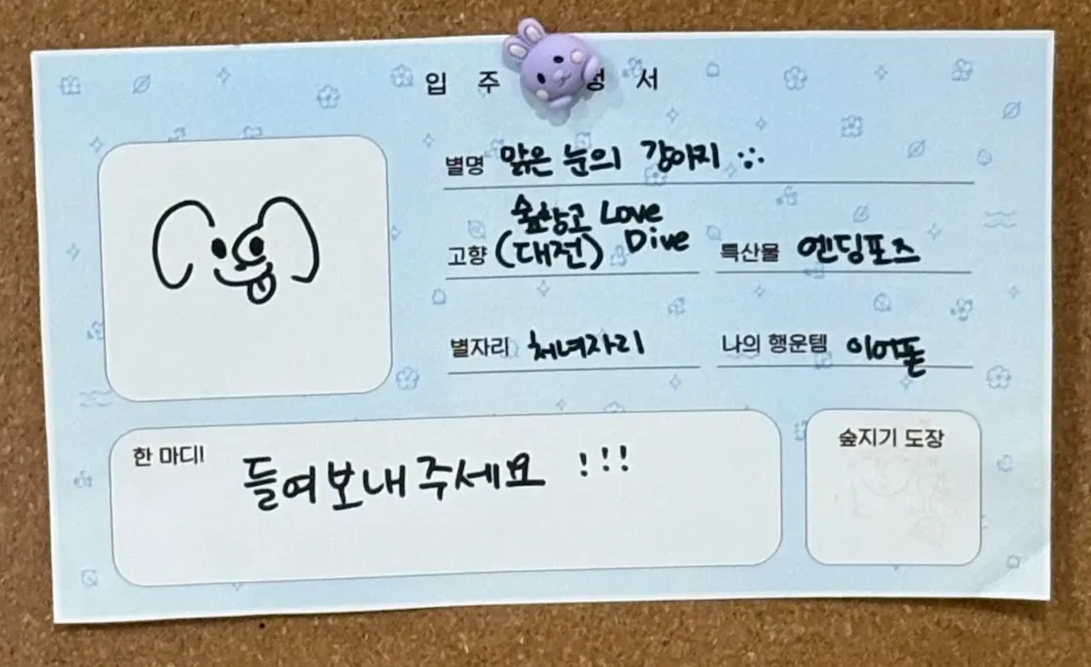 입 주 청 서
별명 맑은 눈의 강아지
숲창고 Love
고향 (대전) Dive
특산물 엔딩포즈
별자리 처녀자리
나의 행운템 이어폰
한 마디!
들여보내주세요 !!!
숲지기 도장